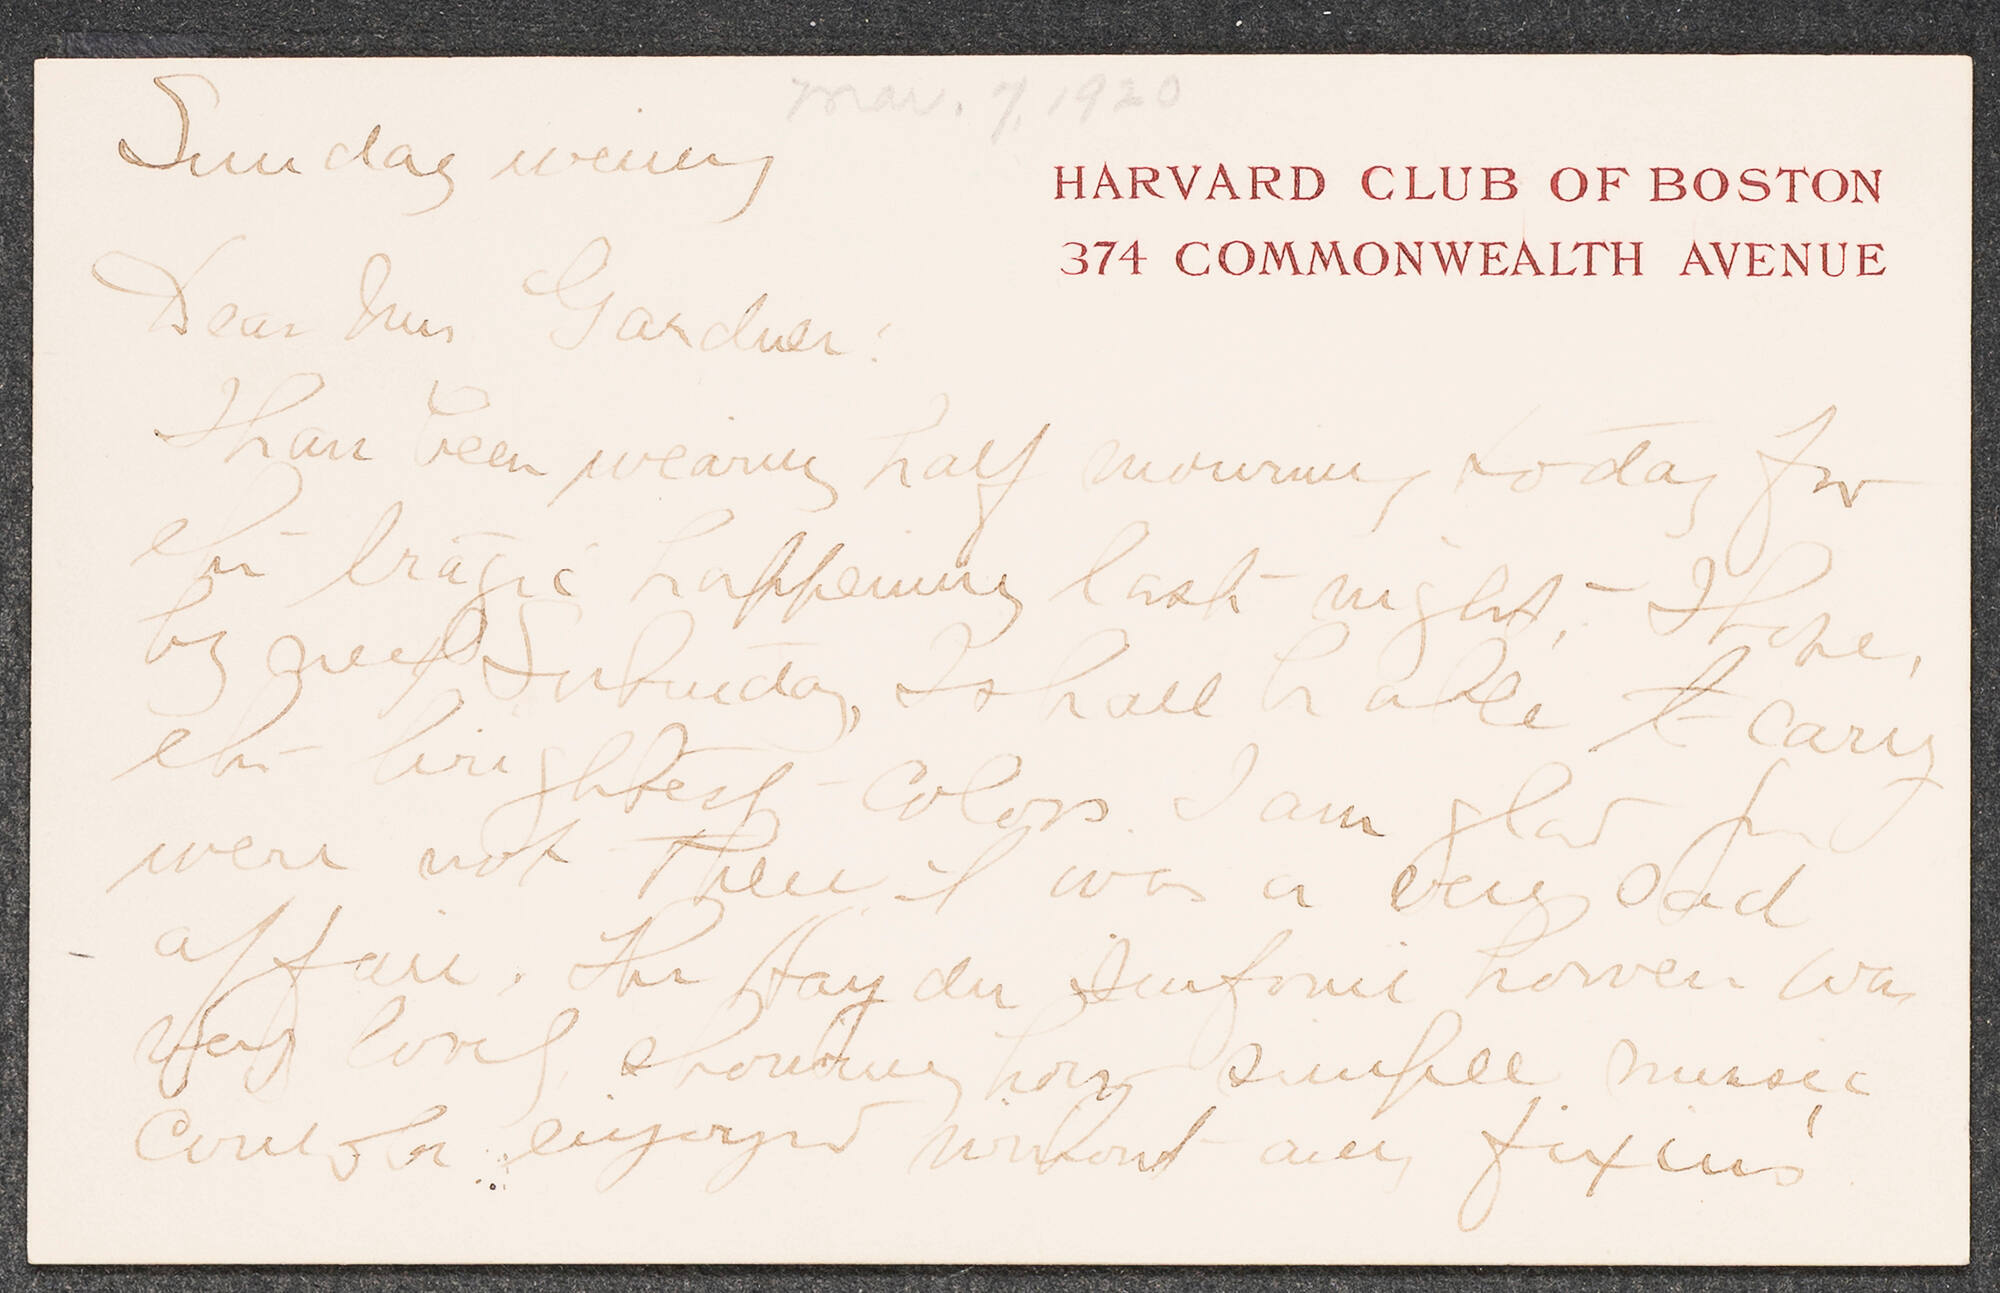 Mar. 7, 1920
Sunday evening
HARVARD CLUB OF BOSTON
374 COMMONWEALTH AVENUE
Dear Mrs Gardner:
I have been wearing half mourning today for
the tragic happening last night, – I hope,
by next Saturday, I shall be able to carry
the brightest colors. I am glad you
were not there – it was a very sad
affair. The Haydn Sinfonie however was
very lovely, showing how simple music
could be enjoyed without any fixins'